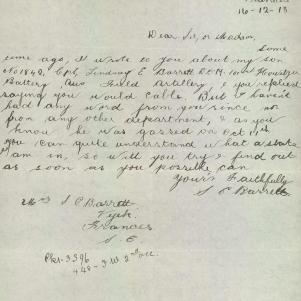 Frances
16-12-18
Dear Sir or Madam,
Some
time ago, I wrote to you about my son
No 1842, Cpl, Lindsay E Barrett D.C.M. Howitzer
Battery Aus Field Artillery, & you replied
saying you would cable. But I havn't
had any word from you since nor
from any other department, & as you
know he was gassed on Oct 1st
You can quite understand what a state
I am in, so will you try & find out
as soon as you possible can
Yours Faithfully
S C Barrett
Mrs S C Barrett
Frances
S E